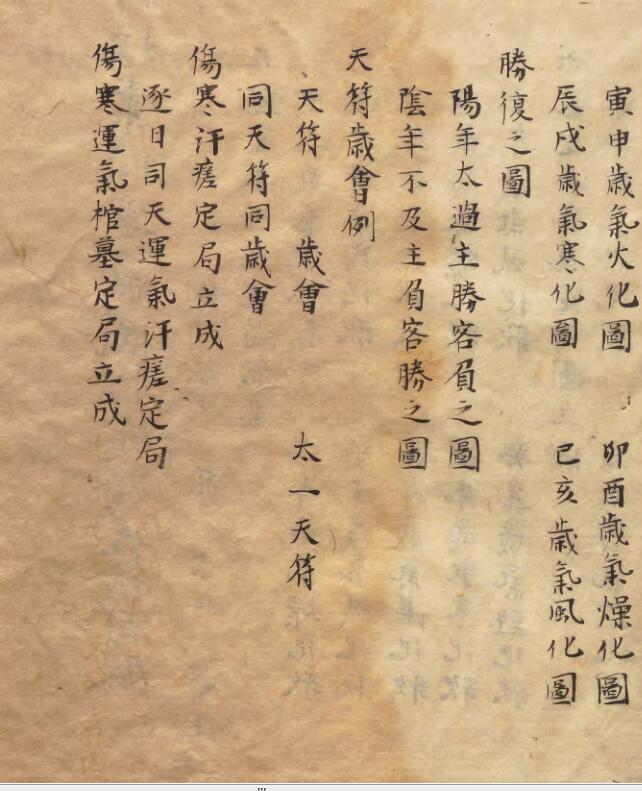 寅申歲氣火化圖　卯酉歲氣燥化圖
辰戌歲氣寒化圖　已亥歲氣風化圖
勝復之圖
陽年太過主勝客負之圖
陰年不及主負客勝之圖
天符歲會例
天符　歲會　太一天符
同天符同歲會
傷寒汗瘥定局立成
逐日司天運氣汗瘥定局
傷寒運氣棺墓定局立成